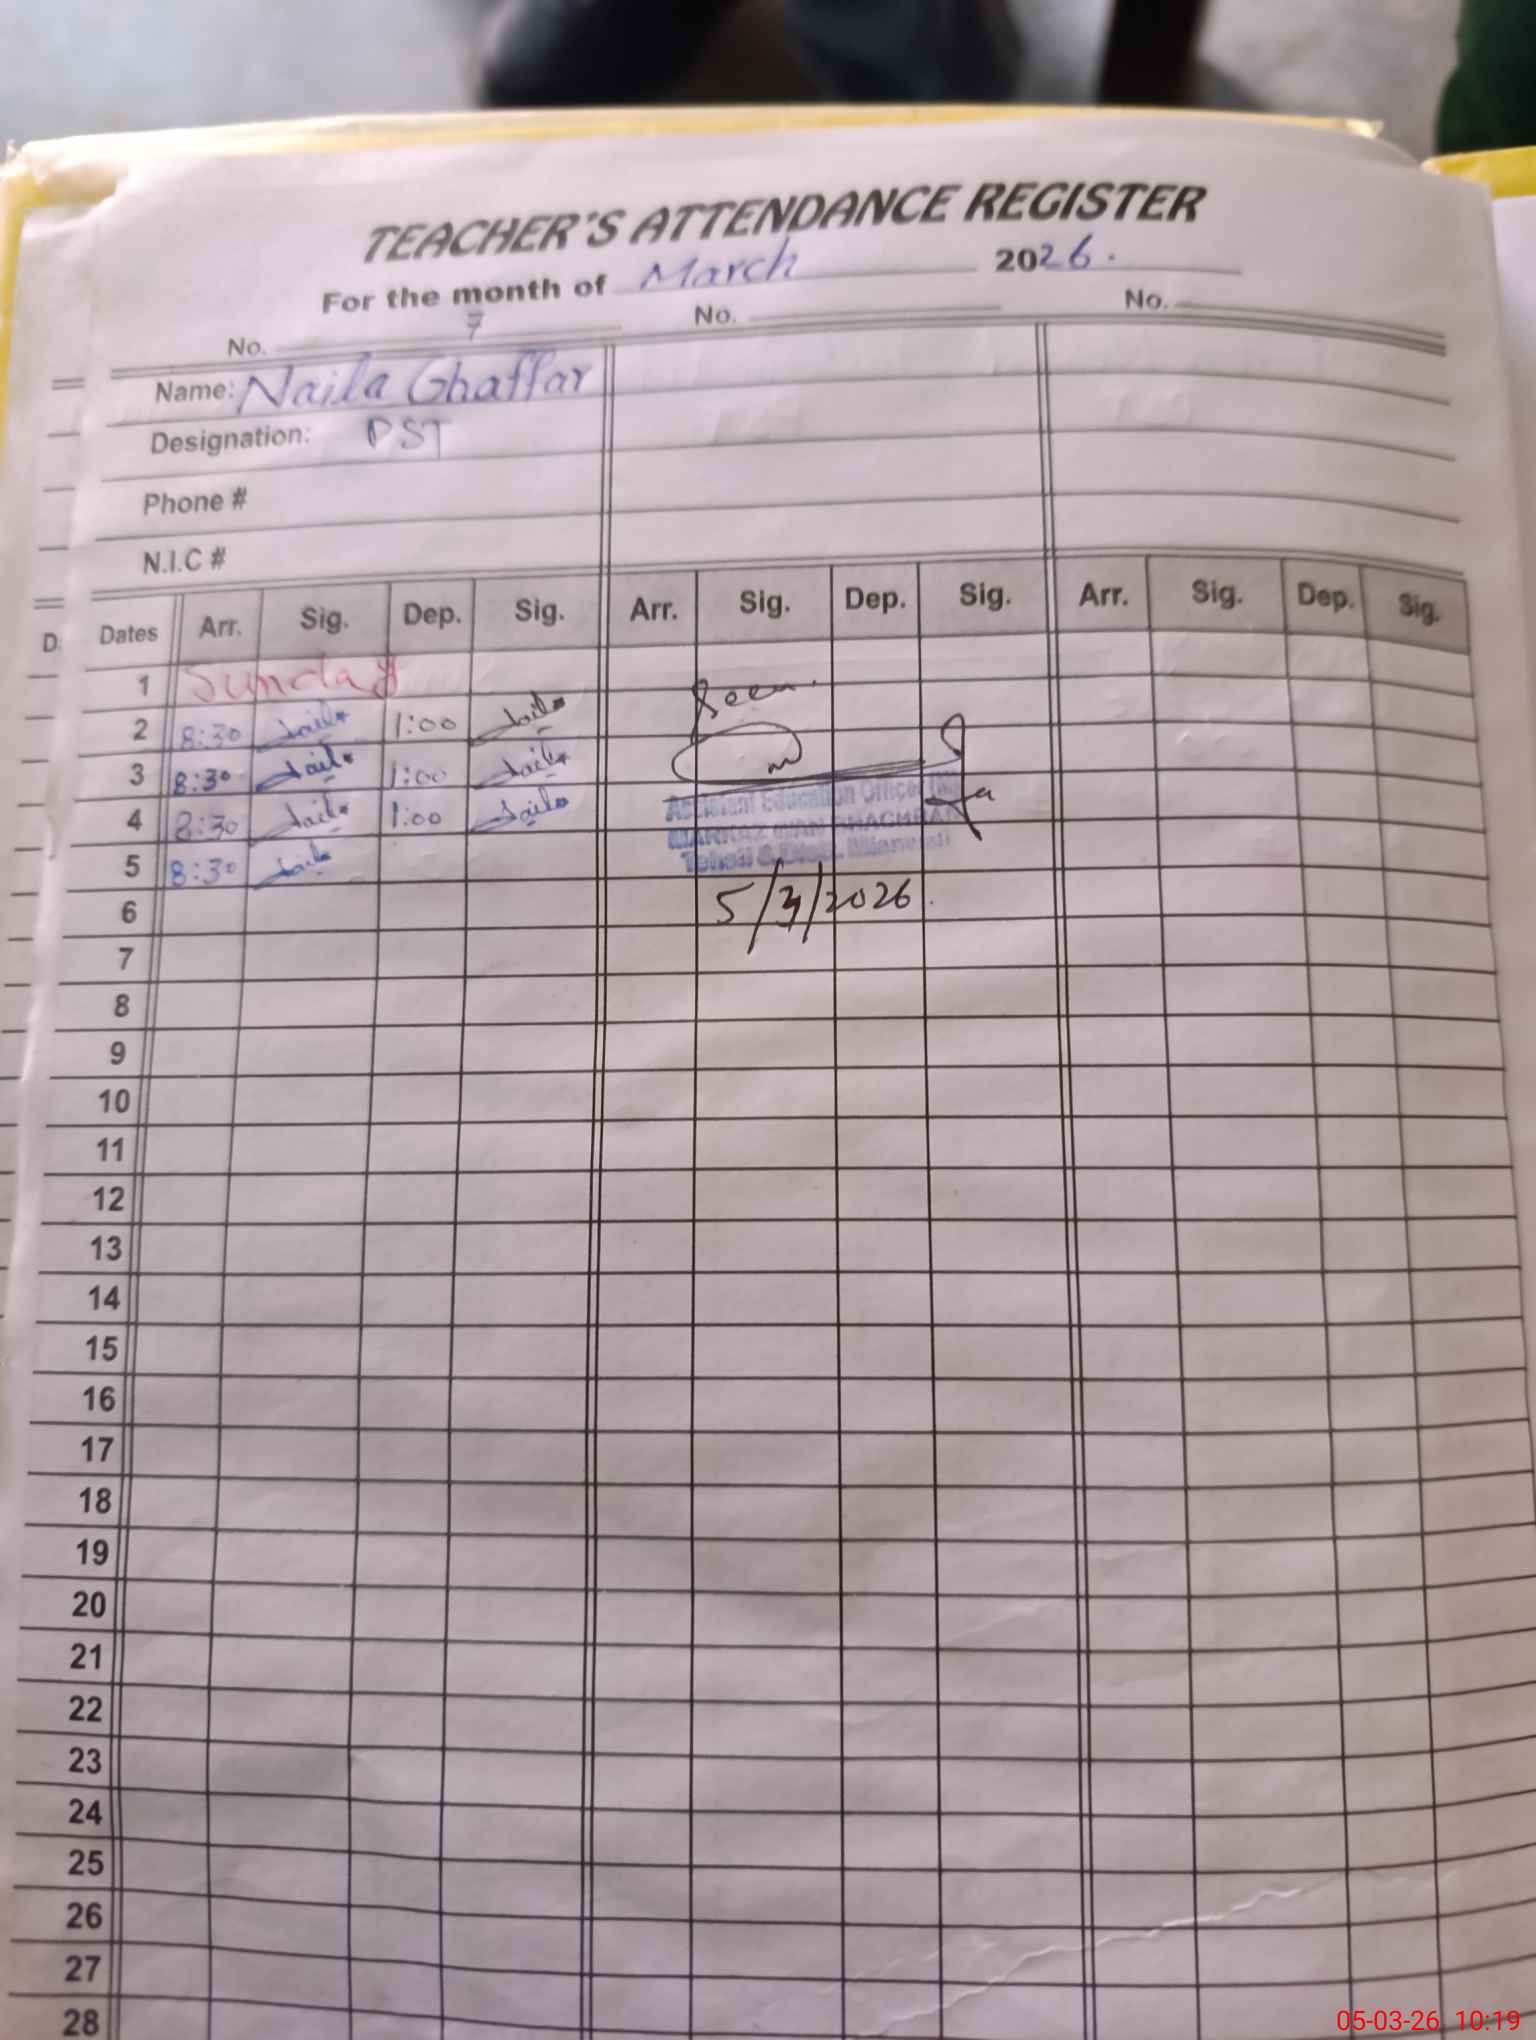 TEACHER'S ATTENDANCE REGISTER
For the month of March 2026.
No. 7 No. No.
Name: Naila Ghaffar
Designation: PST
Phone #
N.I.C #
D. Dates Arr. Sig. Dep. Sig. Arr. Sig. Dep. Sig. Arr. Sig. Dep. Sig.
1 Sunday
2 8:30 Naila 1:00 Naila Seen.
3 8:30 Naila 1:00 Naila
4 8:30 Naila 1:00 Naila
Assistant Education Officer
MARKAZ
Tehsil & Distt. Mianwali
5 8:30 Naila
6 5/3/2026
7
8
9
10
11
12
13
14
15
16
17
18
19
20
21
22
23
24
25
26
27
28
05-03-26 10:19